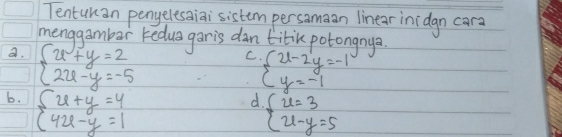 Tentukan penyelesaiai sistem persamaan linear ini dgn cara
menggambar kedua garis dan titik potongnya.
a. { x + y = 2 c. { x - 2y = -1
{ 2x - y = -5 { y = -1
b. { x + y = 4 d. { x = 3
{ 4x - y = 1 { x - y = 5